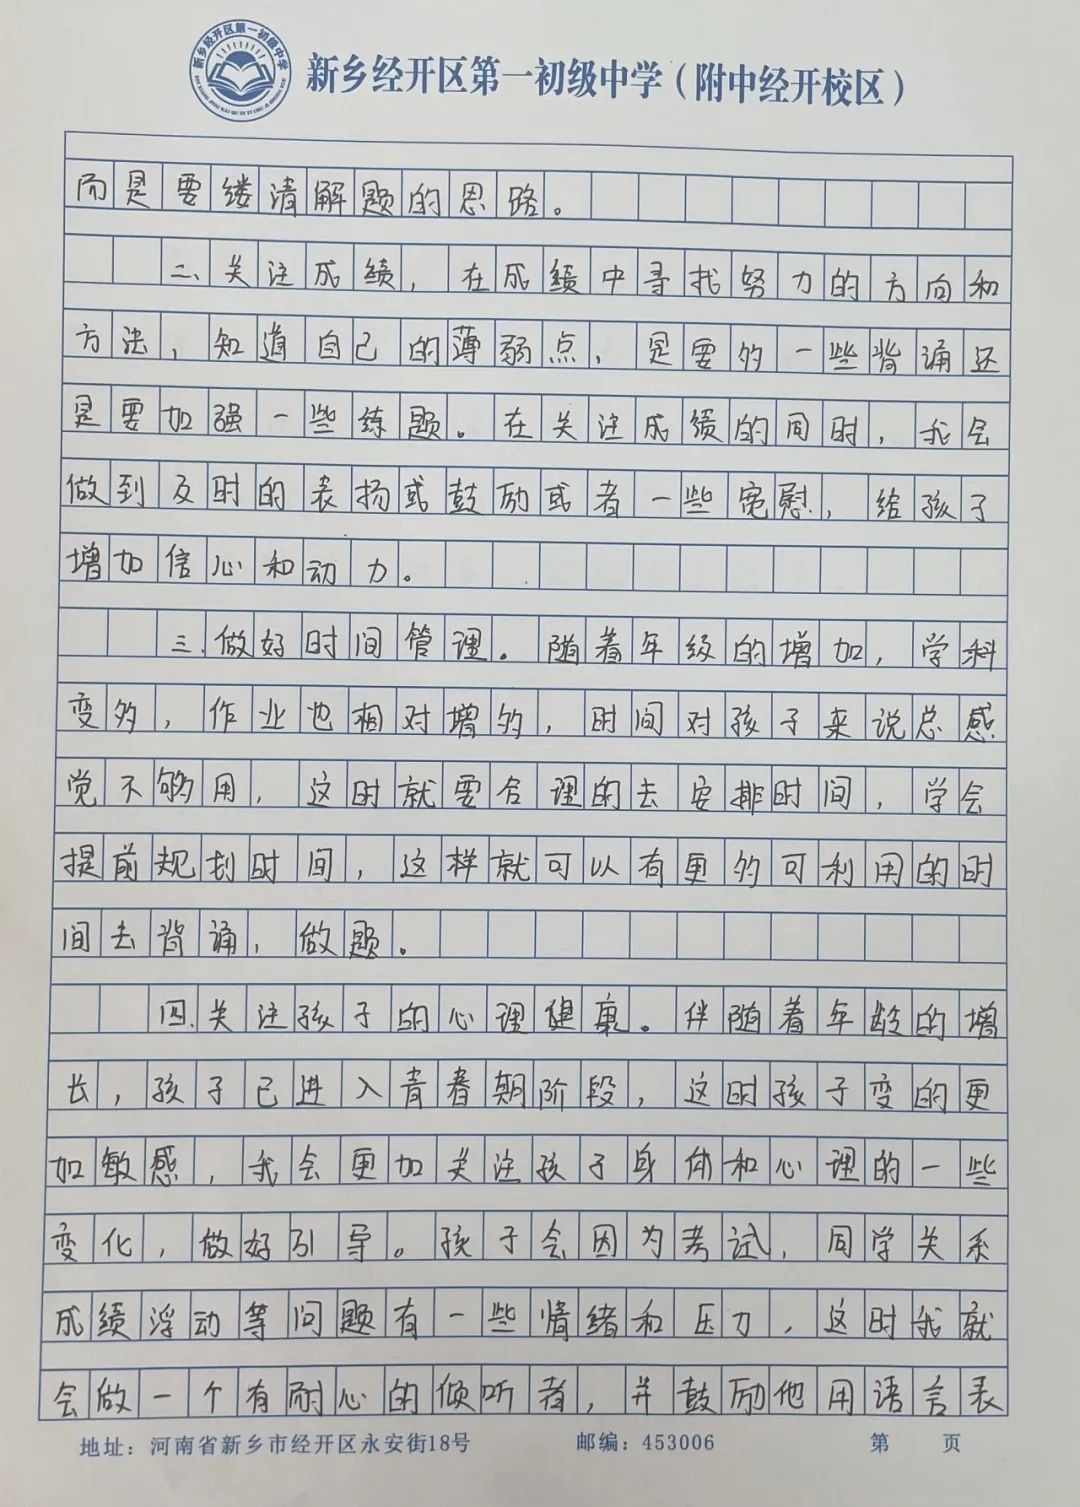 新乡经开区第一初级中学
新乡经开区第一初级中学（附中经开校区）
而是要缕清解题的思路。
二、关注成绩，在成绩中寻找努力的方向和
方法，知道自己的薄弱点，是要多一些背诵还
是要加强一些练题。在关注成绩的同时，我会
做到及时的表扬或鼓励或者一些宽慰，给孩子
增加信心和动力。
三、做好时间管理。随着年级的增加，学科
变多，作业也相对增多，时间对孩子来说总感
觉不够用，这时就要合理的去安排时间，学会
提前规划时间，这样就可以有更多可利用的时
间去背诵，做题。
四、关注孩子的心理健康。伴随着年龄的增
长，孩子已进入青春期阶段，这时孩子变的更
加敏感，我会更加关注孩子身体和心理的一些
变化，做好引导。孩子会因为考试，同学关系
成绩浮动等问题有一些情绪和压力，这时我就
会做一个有耐心的倾听者，并鼓励他用语言表
地址：河南省新乡市经开区永安街18号 邮编：453006 第 页